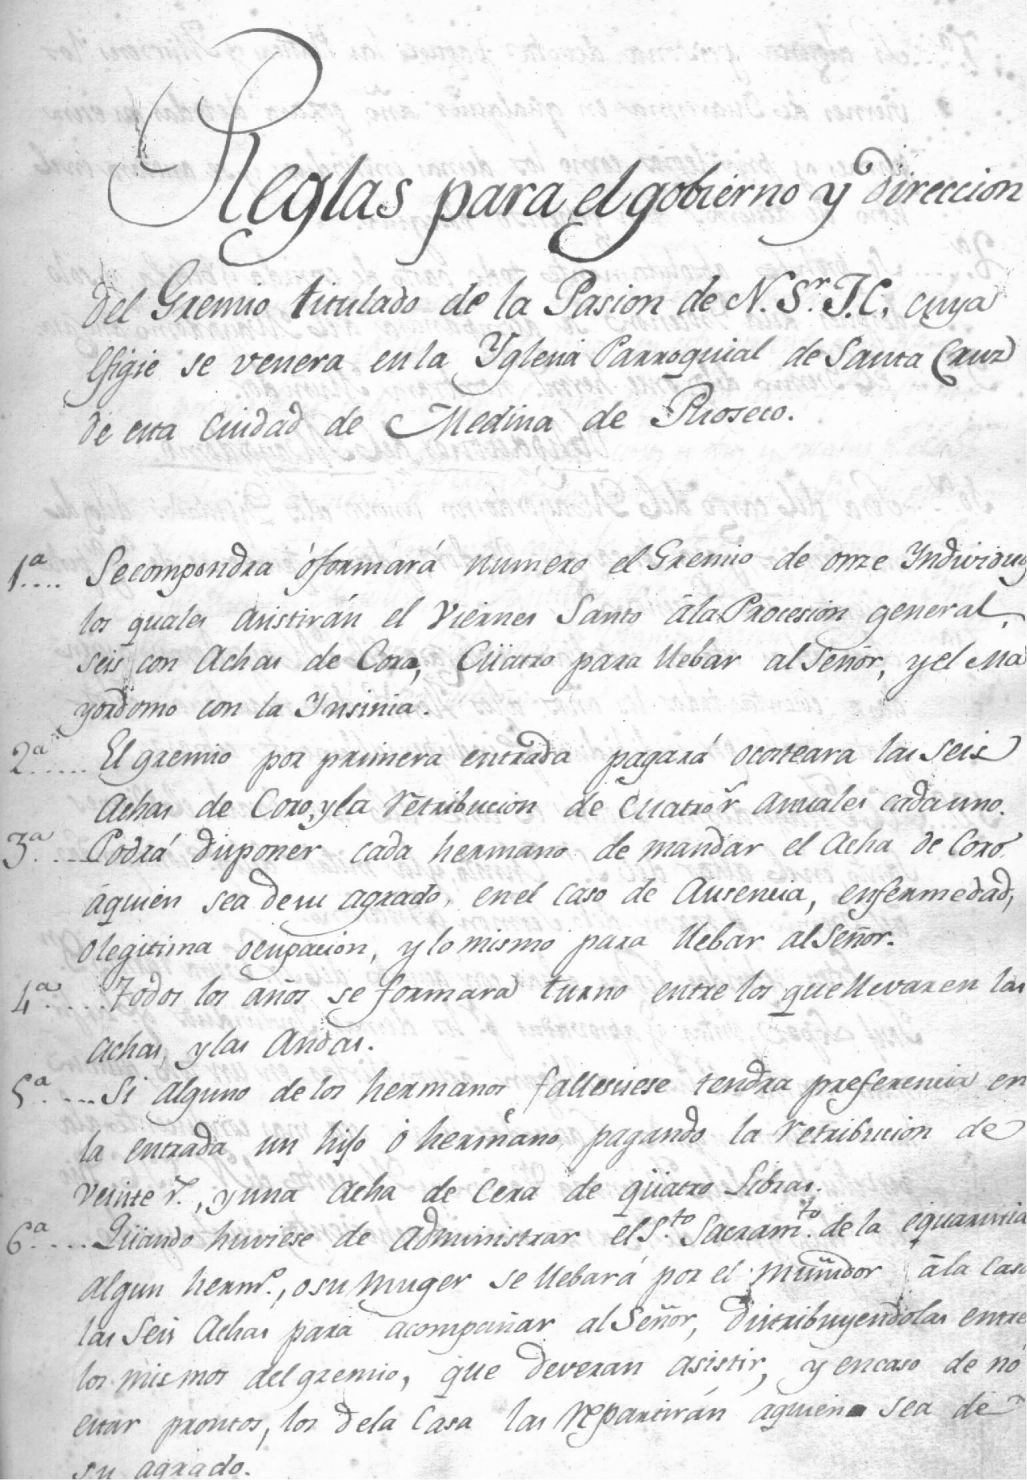 Reglas para el gobierno y direccion
del Gremio titulado de la Pasion de N. Sr. J.C. cuya
efigie se venera en la Yglesia Parroquial de Santa Cruz
de esta Ciudad de Medina de Rioseco.
1ª.... Se compondra ó formará numero el Gremio de onze Yndividuos
los quales asistirán el Viernes Santo á la Procesion general,
seis con Achas de Cera, Cüatro para llebar al Señor, y el Ma
yordomo con la Ynsinia.
2ª..... El gremio por primera entrada pagará ó costeara las seis
Achas de Cera, y la retribucion de Cuatro r. anuales cada uno.
3ª.... Podrá disponer cada hermano de mandar el Acha de Cera
á quien sea de su agrado, en el caso de Ausencia, enfermedad,
o legitima ocupacion, y lo mismo para llebar al Señor.
4ª.... Todos los años se formará turno entre los que llevaren las
Achas, y las Andas.
5ª.... Si alguno de los hermanos falleciese tendra preferencia en
la entrada un hijo ó hermano, pagando la retribucion de
veinte r.s, y una Acha de Cera de qüatro Libras.
6ª.... Qüando huviese de administrar el S.to Sacram.to de la
Algun herm.o, o su muger se llebará por el muñidor á la Casa
las seis Achas para acompañar al Señor, distribuyendolas entre
los mismos del gremio, que deveran asistir, y en caso de nó
estar prontos, los de la Casa las repartirán a quien sea de
su agrado.